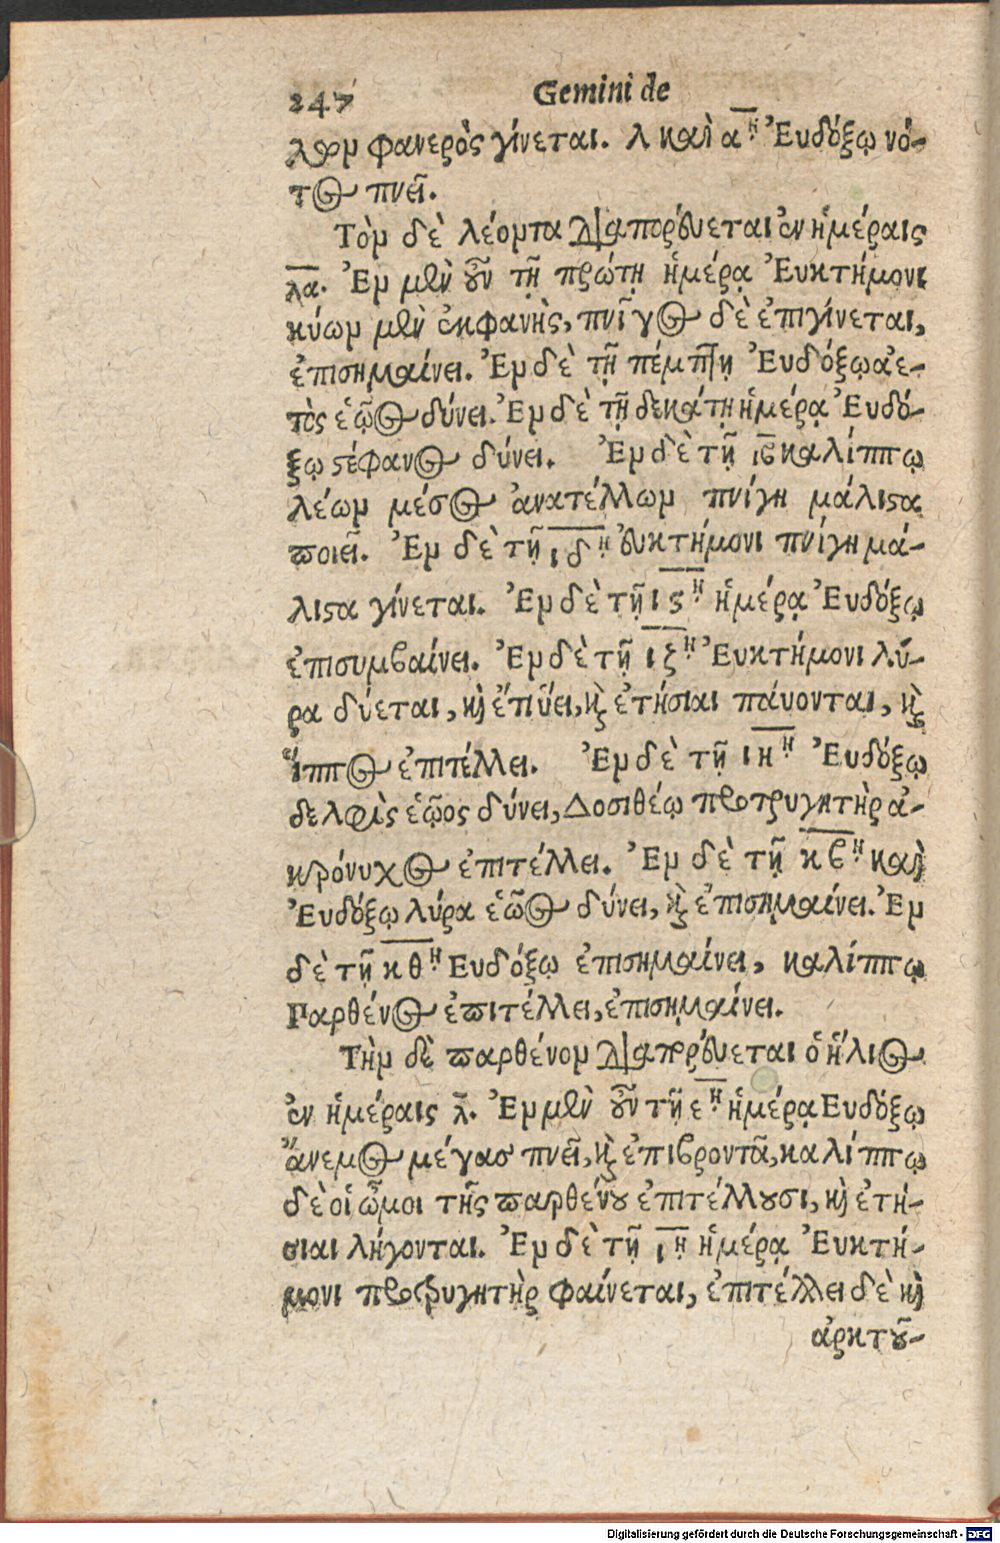 247 Gemini de
λωρ φανερὸς γίνεται. λ καὶ αῃ Ἐυδόξῳ νό-
τος πνεῖ.
Τὸν δὲ λέοντα διαπορεύεται ἐν ἡμέραις
λα. Ἐν μὲν οὖν τῇ πρώτῃ ἡμέρᾳ Ἐυκτήμονι
κύων μὲν ἐκφανὴς, πνῖγος δὲ ἐπιγίνεται,
ἐπισημαίνει. Ἐν δὲ τῇ πέμπτῃ Ἐυδόξῳ ἀε-
τὸς ἑῷος δύνει. Ἐν δὲ τῇ δεκάτῃ ἡμέρᾳ Ἐυδό-
ξῳ στέφανος δύνει. Ἐν δὲ τῇ ιβ καλίππῳ
λέων μέσος ἀνατέλλων πνίγη μάλιστα
ποιεῖ. Ἐν δὲ τῇ ιδῃ ἐυκτήμονι πνίγη μά-
λιστα γίνεται. Ἐν δὲ τῇ ιϛῃ ἡμέρᾳ Ἐυδόξῳ
ἐπισυμβαίνει. Ἐν δὲ τῇ ιζῃ Ἐυκτήμονι λύ-
ρα δύεται, καὶ ἔτι ὕει, καὶ ἐτήσιαι πάυονται, καὶ
ἵππος ἐπιτέλλει. Ἐν δὲ τῇ ιηῃ Ἐυδόξῳ
δελφὶς ἑῷος δύνει, Δοσιθέῳ προτρυγητὴρ ἀ-
κρόνυχος ἐπιτέλλει. Ἐν δὲ τῇ κβῃ καὶ
Ἐυδόξῳ λύρα ἑῶος δύνει, καὶ ἐπισημαίνει. Ἐν
δὲ τῇ κθῃ Ευδόξῳ ἐπισημαίνει, καλίππῳ
Παρθένος ἐπιτέλλει, ἐπισημαίνει.
Τὴν δὲ παρθένον διαπορεύεται ὁ ἥλιος
ἐν ἡμέραις λ. Ἐν μὲν οὖν τῇ εῃ ἡμέρᾳ Ευδόξῳ
ἄνεμος μέγας πνεῖ, καὶ ἐπιβροντᾷ, καλίππῳ
δὲ οἱ ὦμοι τῆς παρθένου ἐπιτέλλουσι, καὶ ἐτή-
σιαι λήγονται. Ἐν δὲ τῇ ιῃ ἡμέρᾳ Ἐυκτή-
μονι προτρυγητὴρ φαίνεται, ἐπιτέλλει δὲ καὶ
ἀρκτοῦ-
Digitalisierung gefördert durch die Deutsche Forschungsgemeinschaft - DFG